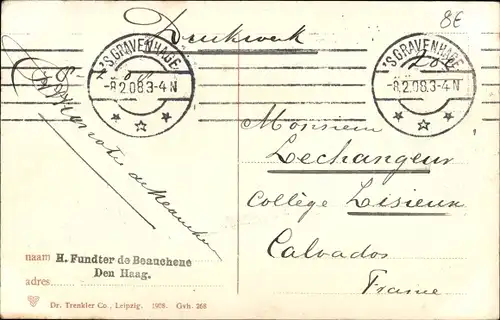 8E
Drukwerk
'S GRAVENHAGE
-8.2.08.3-4N
'S GRAVENHAGE
-8.2.08.3-4N
Monsieur
Lechangeur
Collège Lisieux
Calvados
France
de Beauchene
naam H. Fundter de Beauchene
Den Haag.
adres
Dr. Trenkler Co., Leipzig. 1908. Gvh. 268